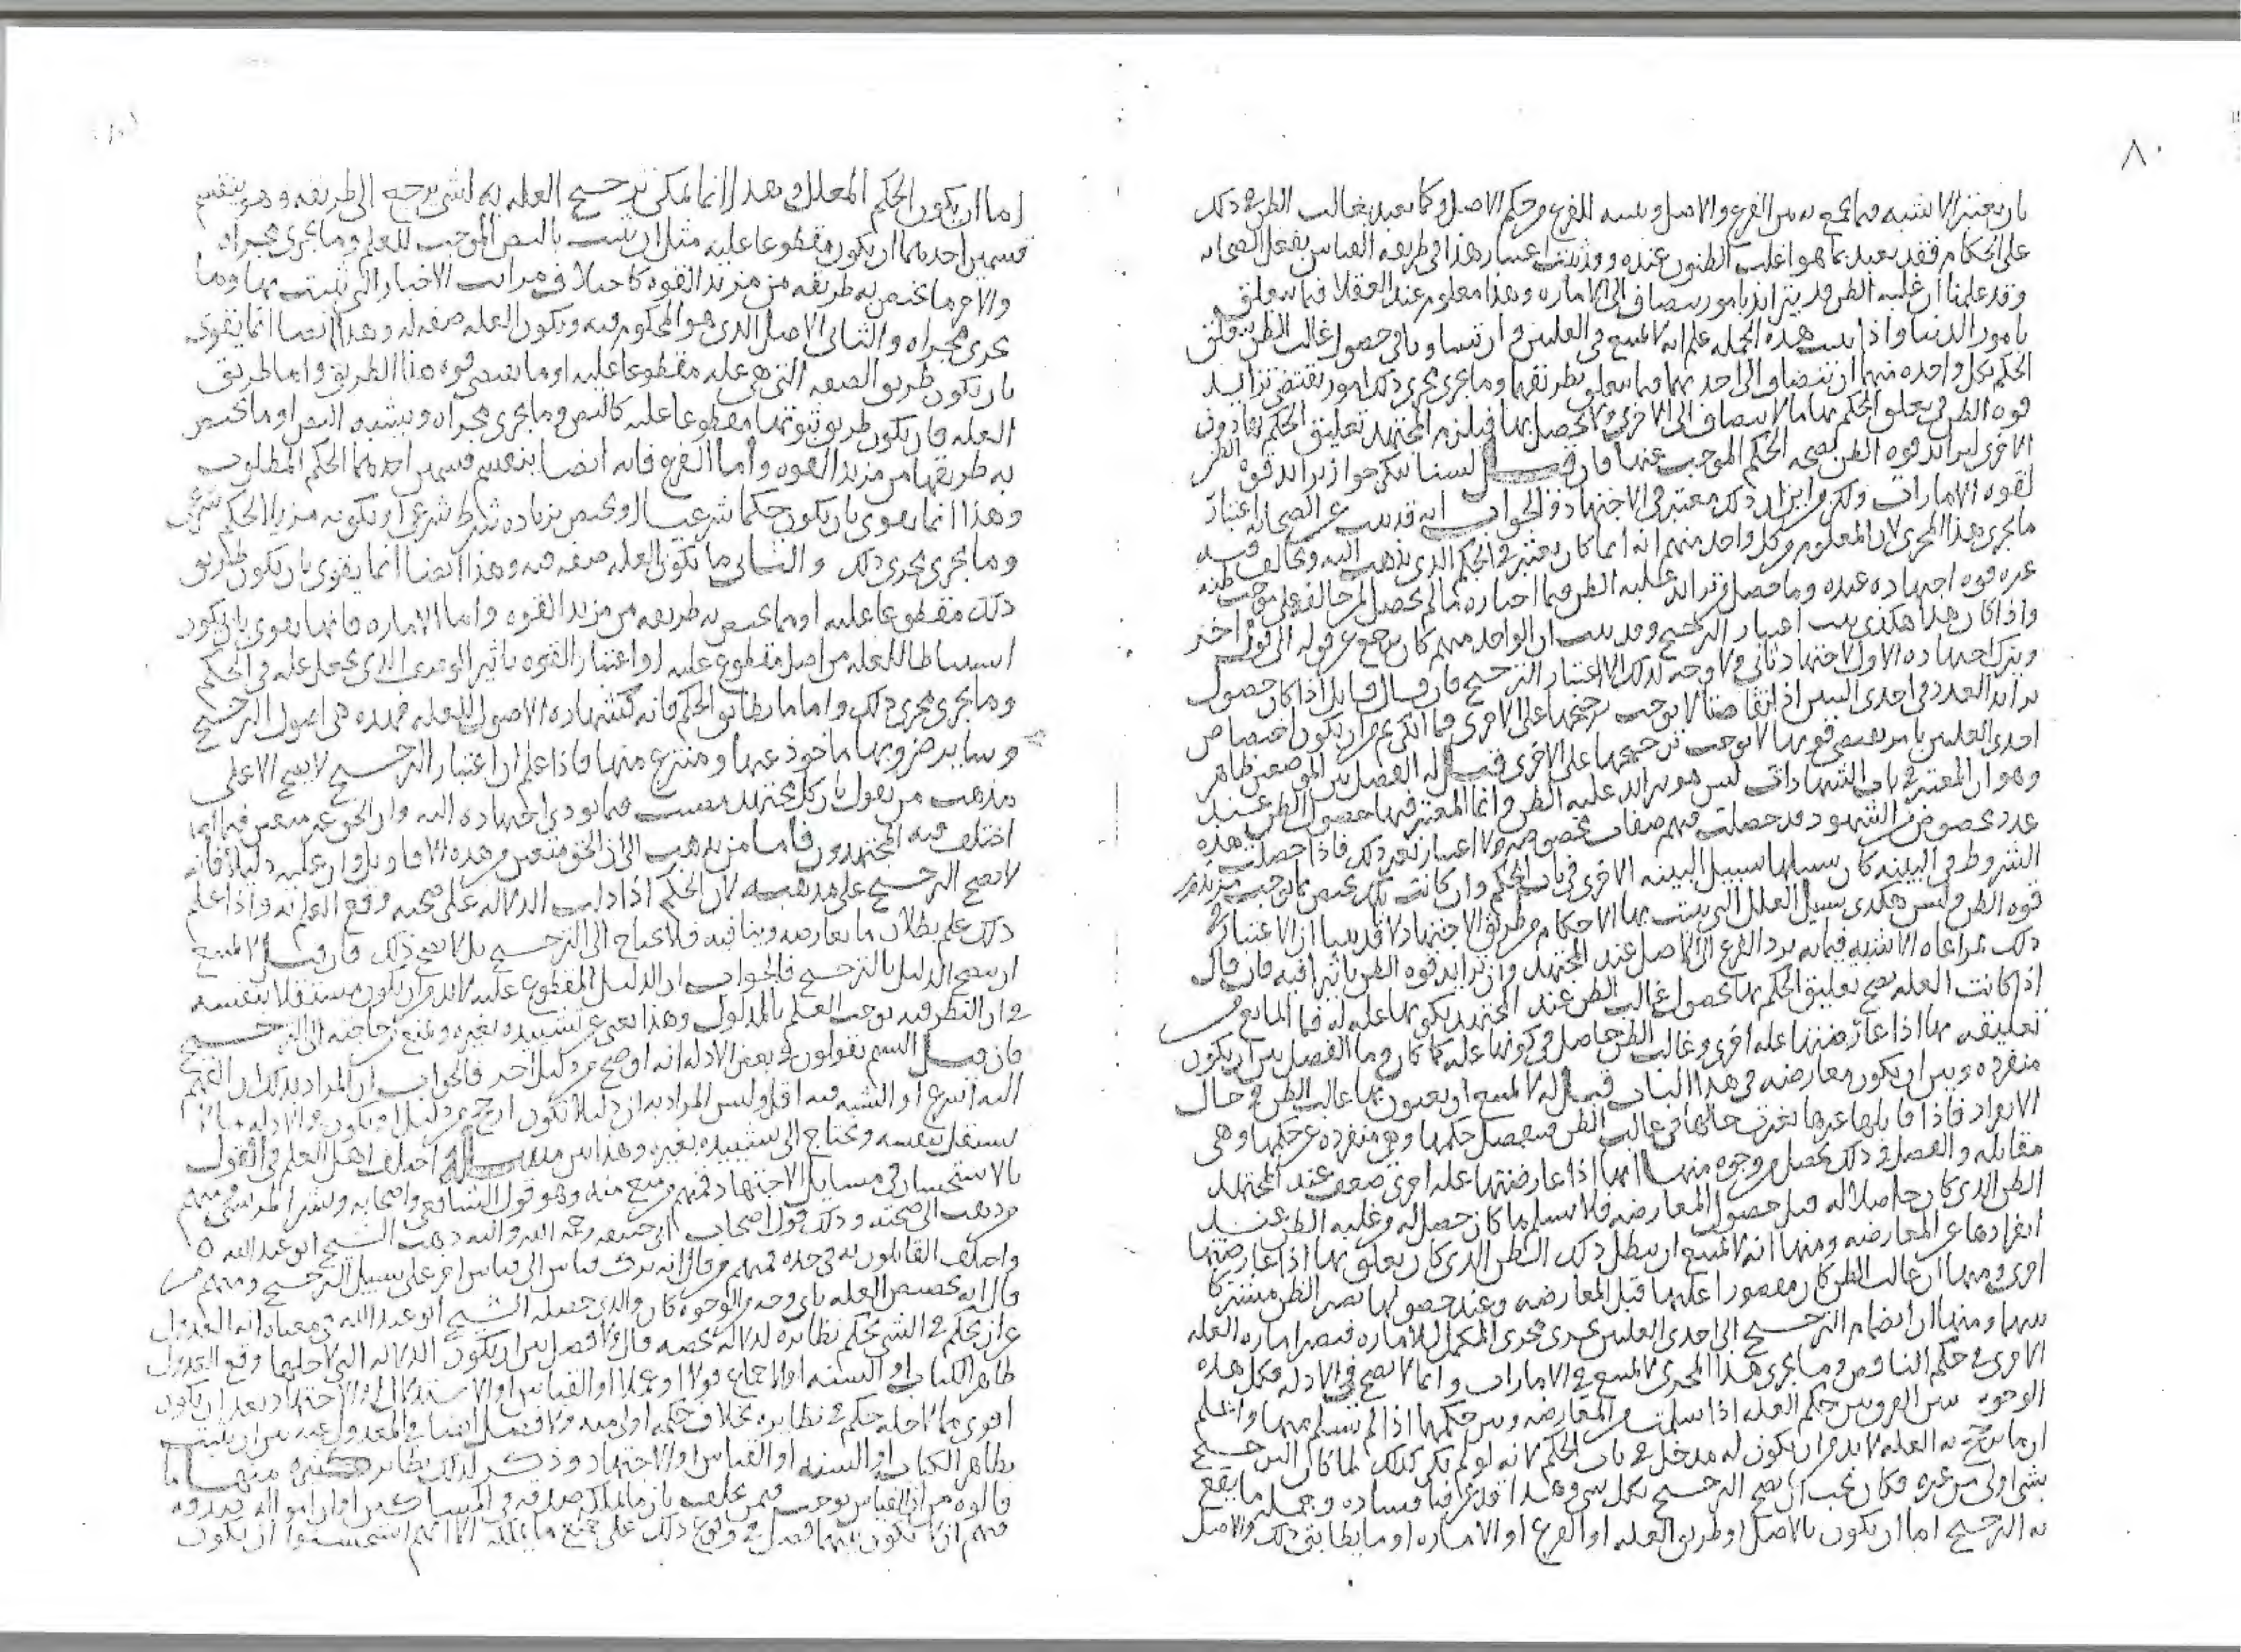 ٨٠
بان يعتبر الاشبه فيما يجمع به بين الفرع والاصل ويشبه الفرع وحكم الاصل وكما تعبد بغالب الظن في ذلك
على الحكام فقد تعبد بما هو اغلب الظنون عنده وقد ثبت اعتبار هذا في طريقه القياس بفعل الصحابه
وقد علمنا ان غلبه الظن قد يتزايد بامور ينضاف الى الاماره وهذا معلوم عند العقلا فيما يتعلق
بامور الدنيا واذا ثبت هذه الجمله علم انه لا يمتنع في العلتين وان تساويا في حصول غالب الظن يتعلق
الحكم بكل واحده منهما ان ينضاف الى احديهما فيما يتعلق بطريقها وما يجري مجرى ذلك امور تقتضي تزايد
قوه الظن في تعلق الحكم بها ما لا ينضاف الى الاخرى ولا يحصل بها فيلزم المجتهد تعليق الحكم بها دون
الاخرى لتزايد قوه الظن بصحه الحكم الموجب عنها فان قيل لسنا ننكر جواز تزايد قوه الظن
لقوه الامارات ولكن من اين ان ذلك معتبر في الاجتهاد فالجواب انه قد ثبت عن الصحابه اعتبار
ما يجري هذا المجرى لان المعلوم من كل واحد منهم انه انما كان يعتبر في الحكم الذي يذهب اليه ويخالف فيه
غيره قوه اجتهاده عنده وما حصل من تزايد غلبه الظن فيما اختاره ما لم يحصل لمن خالفه على موجب ظنه
واذا كان هذا هكذى ثبت اعتبار الترجيح وقد ثبت ان الواحد منهم كان يرجع عن قوله الى قول اخر
ويترك اجتهاده الاول لاجتهاد ثاني ولا وجه لذلك الا اعتبار الترجيح فان قال قايل اذا كان حصول
تزايد العدد في احدى البينتين اذا تقاضتا لا يوجب ترجيحها على الاخرى فما انكرتم من ان يكون اختصاص
احدى العلتين بامر يقتضي قوتها لا يوجب ترجيحها على الاخرى قيل له الفصل بين الموضعين ظاهر
وهو ان المعتبر في باب الشهادات ليس هو تزايد غلبه الظن وانما المعتبر فيها حصول الظن عند
عدد مخصوص من الشهود قد حصلت فيهم صفات مخصوصه ولا اعتبار بغير ذلك فاذا حصلت هذه
الشروط في البينه كان سبيلها سبيل البينه الاخرى في باب الحكم وان كانت تلك تختص بما يوجب مزيد من
قوه الظن وليس هكذى سبيل العلل التي يثبت بها الاحكام من طريق الاجتهاد لانا قد بينا ان الاعتبار في
ذلك بمراعاه الاشبه فيما به يرد الفرع الى الاصل عند المجتهد وان تزايد قوه الظن تاثيرا فيه فان قال
اذا كانت العله يصح تعليق الحكم بها بحصول غالب الظن عند المجتهد بكونها عله له فما المانع من
تعليقه بها اذا عارضتها عله اخرى وغالب الظن حاصل في كونها عله كما كان وما الفصل بين ان يكون
منفرده وبين ان يكون معارضه في هذا الباب قيل له لا يمتنع ان يتعلق بها غالب الظن في حال
الانفراد فاذا قابلها غيرها تغيرت حالها في غالب الظن فينفصل حكمها وهي منفرده عن حكمها وهي
مقابله والفصل في ذلك يحصل من وجوه منها انها اذا عارضتها عله اخرى ضعف عند المجتهد
الظن الذي كان حاصلا له قبل حصول المعارضه فلا يسلم ما كان حصل له من غلبه الظن عند
انفرادها عن المعارضه ومنها انه لا يمتنع ان يبطل ذلك الظن الذي كان يعلق بها اذا عارضتها
اخرى ومنها ان غالب الظن كان مقصورا عليها قبل المعارضه وعند حصولها يصير الظن مشتركا
بينهما ومنها ان انضمام الترجيح الى احدى العلتين يجري مجرى المكمل للاماره فتصير اماره العله
الاخرى في حكم الناقص وما يجري هذا المجرى لا يمتنع في الامارات وانما لا يصح في الادله فكل هذه
الوجوه تبين الفرق بين حكم العله اذا سلمت من المعارضه وبين حكمها اذا لم تسلم منها واعلم
ان ما ترجح به العله لابد من ان يكون له مدخل في باب الحكم لانه لو لم يكن كذلك لما كان الترجيح
بشي اولى من غيره فكان يجب ان يصح الترجيح بكل شي وهذا قد عرفنا فساده وجمله ما يقع
به الترجيح اما ان يكون بالاصل او طريق العله او الفرع او الاماره او ما يطابق ذلك والاصل
اما ان يكون الحكم المعلل وهذا انما يمكن ترجيح العله به لشي يرجع الى طريقه وهو ينقسم
قسمين احدهما ان يكون مقطوعا عليه مثل ان يثبت بالنص الموجب للعلم وما يجري مجراه
والاخر ما يختص به طريقه من مزيد القوه كاختلاف مراتب الاخبار التي يثبت بها وما
يجري مجراه والثاني الاصل الذي هو المحكوم فيه ويكون العله صفه له وهذا ايضا انما يقوى
بان يكون طريق الصفه التي هي عله مقطوعا عليه او ما يقتضي قوه هذا الطريق واما طريق
العله فان يكون طريق ثبوتها مقطوعا عليه كالنص وما يجري مجراه ويشبه النص او ما يختص
به طريقها من مزيد القوه واما الفرع فانه ايضا ينقسم قسمين احدهما الحكم المطلوب
وهذا انما يقوى بان يكون حكما شرعيا او يختص بزياده شرط شرعي او يكون به مزيدا لحكم شرعي
وما يجري مجرى ذلك والثاني ما تكون العله صفه فيه وهذا ايضا انما يقوى بان يكون طريق
ذلك مقطوعا عليه او بما يختص به طريقه من مزيد القوه واما الاماره فانها تقوى بان يكون
استنباطا للعله من اصل مقطوع عليه او اعتبار القوه تاثير الوصف الذي يجعل عله في الحكم
وما يجري مجرى ذلك واما ما يطابق الحكم فانه كشهاده الاصول للعله فهذه هي اصول الترجيح
وساير ضروبها ماخوذ عنها ومنتزع منها فاذا علم ان اعتبار الترجيح لا يصح الا على
مذهب من يقول بان كل مجتهد مصيب فيما يودي اجتهاده اليه وان الحق غير متعين فيما
اختلف فيه المجتهدون فاما من يذهب الى ان الحق متعين من هذه الاقاويل وان عليه دليلا فانه
لا يصح الترجيح على مذهبه لان الحكم اذا دلت الدلاله على صحته وقع العلم به واذا علم
ذلك علم بطلان ما يعارضه وينافيه فلا يحتاج الى الترجيح بل لا يصح ذلك فان قيل لا يمتنع
ان يصح الدليل بالترجيح فالجواب ان الدليل المقطوع عليه لابد من ان يكون مستقلا بنفسه
وان النظر فيه يوجب العلم بالمدلول وهذا يغني عن تشييده بغيره ويمنع من حاجته الى الترجيح
فان قيل السم تقولون في بعض الادله انه اوضح من دليل اخر فالجواب ان المراد بذلك ان الفهم
اليه اسرع او الشبه فيه اقل وليس المراد به ان دليلا يكون ارجح من دليل او يكون في الادله ما لا
يستقل بنفسه ويحتاج الى تشييده بغيره وهذا بين مسله اختلف اهل العلم في القول
بالاستحسان في مسايل الاجتهاد فمنهم من منع منه وهو قول الشافعي واصحابه وبشر المريسي ومنهم
من ذهب الى صحته وذلك قول اصحاب ابي حنيفه رحمه الله واليه ذهب الشيخ ابو عبد الله
واختلف القايلون به في حده فمنهم من قال انه ترك قياس الى قياس اخر على سبيل الترجيح ومنهم من
قال انه تخصيص العله باي وجه من الوجوه كان والذي حصله الشيخ ابو عبد الله في معناه انه العدول
عن ان يحكم في الشي بحكم نظايره لدلاله تخصه قال ولا فصل بين ان يكون الدلاله التي لاجلها وقع العدول
ظاهر الكتاب او السنه او الاجماع قولا او عملا او القياس او الاستدلال والاجتهاد بعد ان يكون
اقوى مما لاجله حكم في نظايره بخلاف حكمه اولى منه ولا فصل ايضا في المعدول عنه بين ان يثبت
بظاهر الكتاب او السنه او القياس او الاجتهاد وذكر لذلك نظاير كثيره منها ما
قالوه من ان القياس يوجب فيمن حلف بان ما املك صدقه في المساكين او ان امواله صدقه
فيهم ان لا يكون بينهما فصل في وقوع ذلك على جميع ما يملكه الا انهم استحسنوا ان يكون